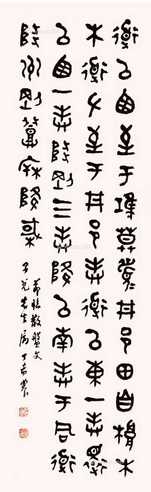 道以西至于莫眉井邑田自根木
木道左至于井邑封道以東一封還
以西一封陟剛三封降以南封于同道
陟州剛登降棫
節臨散盤文
先生屬